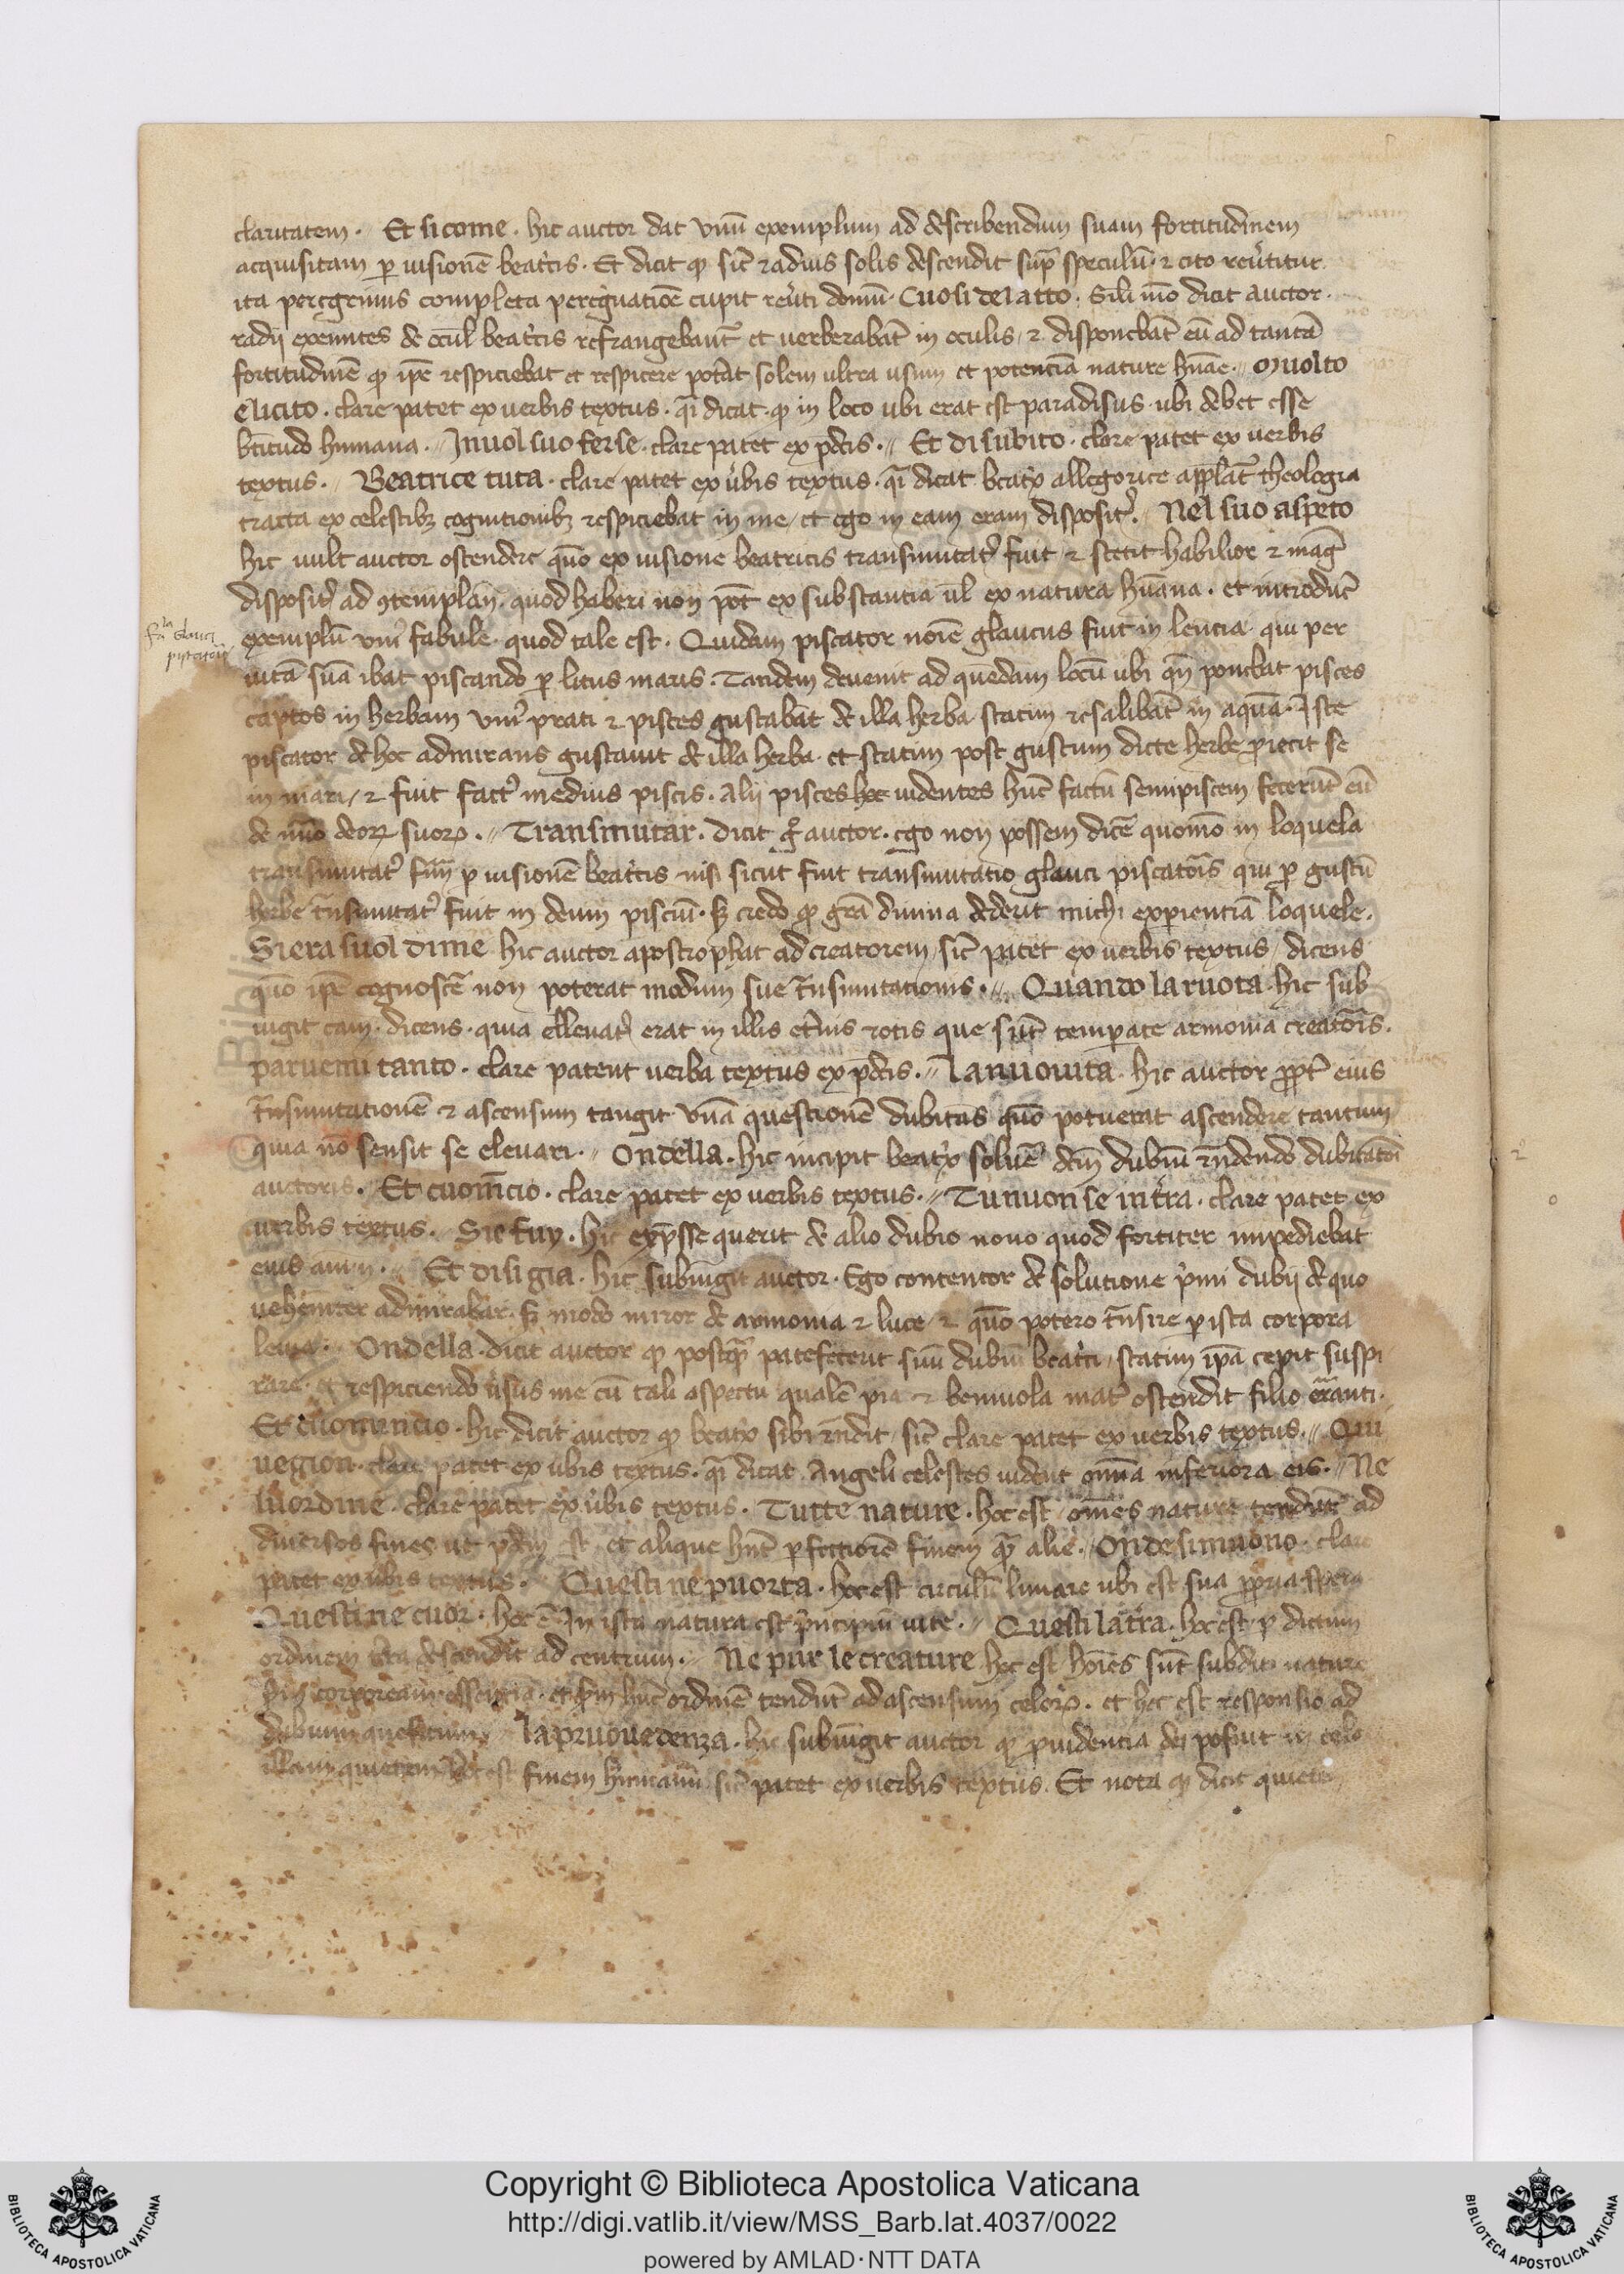 claritatem. Et sicome. hic auctor dat vnū exemplum ad describendum suam fortitudinem
acquisitam p̲ uisionē beatͥcis. Et dicit ꝙ sic̄ radius solis descendit sup̄ speculū. ⁊ cito reu̓titur
ita peregrinus completa peregͥnatiōe cupit reu̓ti domū. Cuosi del atto. Sili mō dicit auctor.
radij exeuntes de ocul̄ beatͥcis refrangebant᷑ et uerberabāt in oculis, ⁊ disponebāt eū ad tantā
fortitudinē ꝙ ip̄e respiciebat et respicere pot̓at solem ultra usum et potenciā nature hūae. Muolto
elicito. clare patet ex uerbis textus. q̄i dicat. ꝙ in loco ubi erat est paradisus. ubi debet esse
b̄titudo humana. Inuol suo ferse. clare patet ex p̄dc̄is. Et di subito. clare patet ex uerbis
textus. Beatrice tuta. clare patet ex u̓bis textus. q̄i dicat beatͥx allegorice app̲lat᷑ theologia
tracta ex celestibꝫ cognitionibꝫ respiciebat in me, et ego in eam eram disposit᷒. Nel suo aspeto
hic uult auctor ostendere quō ex uisione beatricis transmutat᷒ fuit ⁊ stetit habilior ⁊ mag̓
disposit᷒ ad ꝯtemplan̄. quod haberi non pōt ex substantia ul̄ ex natura hūana. et introduc̄
exemplū vni᷒ fabule. quod tale est. Quidam piscator noīe glaucus fuit in lencia. qui per
fa̅la glauci
piscatoris
uitā suā ibat piscando p̲ litus maris. Tandem deuenit ad quēdam locū ubi qn̄ ponebat pisces
captos in herbam vni᷒ prati ⁊ pisces gustabāt de illa herba statim resalibāt in aquā. Iste
piscator de hoc admirans gustauit de illa herba. et statim post gustum dicte herbe proiecit se
in mari, ⁊ fuit fact᷒ medius piscis. Alij pisces hoc uidentes hūc factū semipiscem fecerūt eū
de nūo deoꝝ suoꝝ. Transmutar. dicit gͦ auctor. ego non possem dicē quomō in loquela
transmutat᷒ fui p̲ uisionē beatͥcis nisi sicut fuit transmutatio glauci piscatōis qui p̲ gustū
herbe t̄nsmutat᷒ fuit in deum pisciū. sꝫ credo ꝙ grā diuina dederit michi exp̲ientiā loquele.
Siera suol dime hic auctor apostrophat ad creatorem, sic̄ patet ex uerbis textus, dicens
quō ip̄e cognoscē non poterat modum sue t̄nsmutationis. Quando la ruota. hic sub
iugit cam. dicens. quia elleuat᷒ erat in illis et̓nis rotis que sūt temperate armonia creatōis.
paruemi tanto. clare patent uerba textus ex p̄dc̄is. La nuouita. hic auctor ꝓpt̓ eius
t̄nsmutationē ⁊ ascensum tangit vnā questionē dubitās quō potuerat ascendere tantum
quia nō sensit se eleuari. Ondella. hic incipit beatͥx soluē dc̄m dubiū rn̄dendo dubitatōi
auctoris. Et cuom̄cio. clare patet ex uerbis textus. Tu nuon se in t̓ra. clare patet ex
uerbis textus. Sie fuy. hic exp̄sse querit de alio dubio nouo quod fortiter impediebat
eius anim. Et disi gia. hic subiūgit auctor. Ego contentor de solutione pͥmi dubij de quo
uehemēter admirabar. sꝫ modo miror de armonia ⁊ luce, ⁊ quō potero t̄nsire p̲ ista corpora
leuia. Ondella. dicit auctor ꝙ postqͣ patefecerit suū dubiū beatͥci, statim ip̄a cepit suspi
rare. et respiciendo u̓sus me cū tali aspectu qualē pia ⁊ beniuola mat̓ ostendit filio erranti.
Et cuomencio. hic dicit auctor ꝙ beatͥx sibi rn̄dit, sic̄ clare patet ex uerbis textus. Qui
uegion. clare patet ex u̓bis textus. q̄i dicat Angeli celestes uident omīa inferiora eis. Ne
luordine. clare patet ex u̓bis textus. Tutte nature. hoc est. omēs nature tendūt ad
diuersos fines ut p̄dc̄m est et alique hn̄t p̲fectiorē finem qͣ alie. Onde simuono. clare
patet ex u̓bis textus. Questi ne puorta. hoc est circulū lunare ubi est sua ꝓpria spera
Questi ne cuor. hoc ē In ista natura est pͥncipiū uite. Questi la t̓ra. hoc est p̲ dictum
ordinem t̓ra descendit ad centrum. Ne pur le creature hoc est hoīes sūt subditi nature
corpoream essentiā. et hūc ordinē tendūt ad ascensum celoꝝ. et hec est responsio ad
dubium quesitum. La pruouedenza. hic subiūgit auctor ꝙ prouidencia dei posuit in celo
illam quietem hoc est finem humanū sic̄ patet ex uerbis textus. Et nota ꝙ dicit quiete
Copyright © Biblioteca Apostolica Vaticana
http://digi.vatlib.it/view/MSS_Barb.lat.4037/0022
powered by AMLAD·NTT DATA
BIBLIOTECA APOSTOLICA VATICANA
BIBLIOTECA APOSTOLICA VATICANA